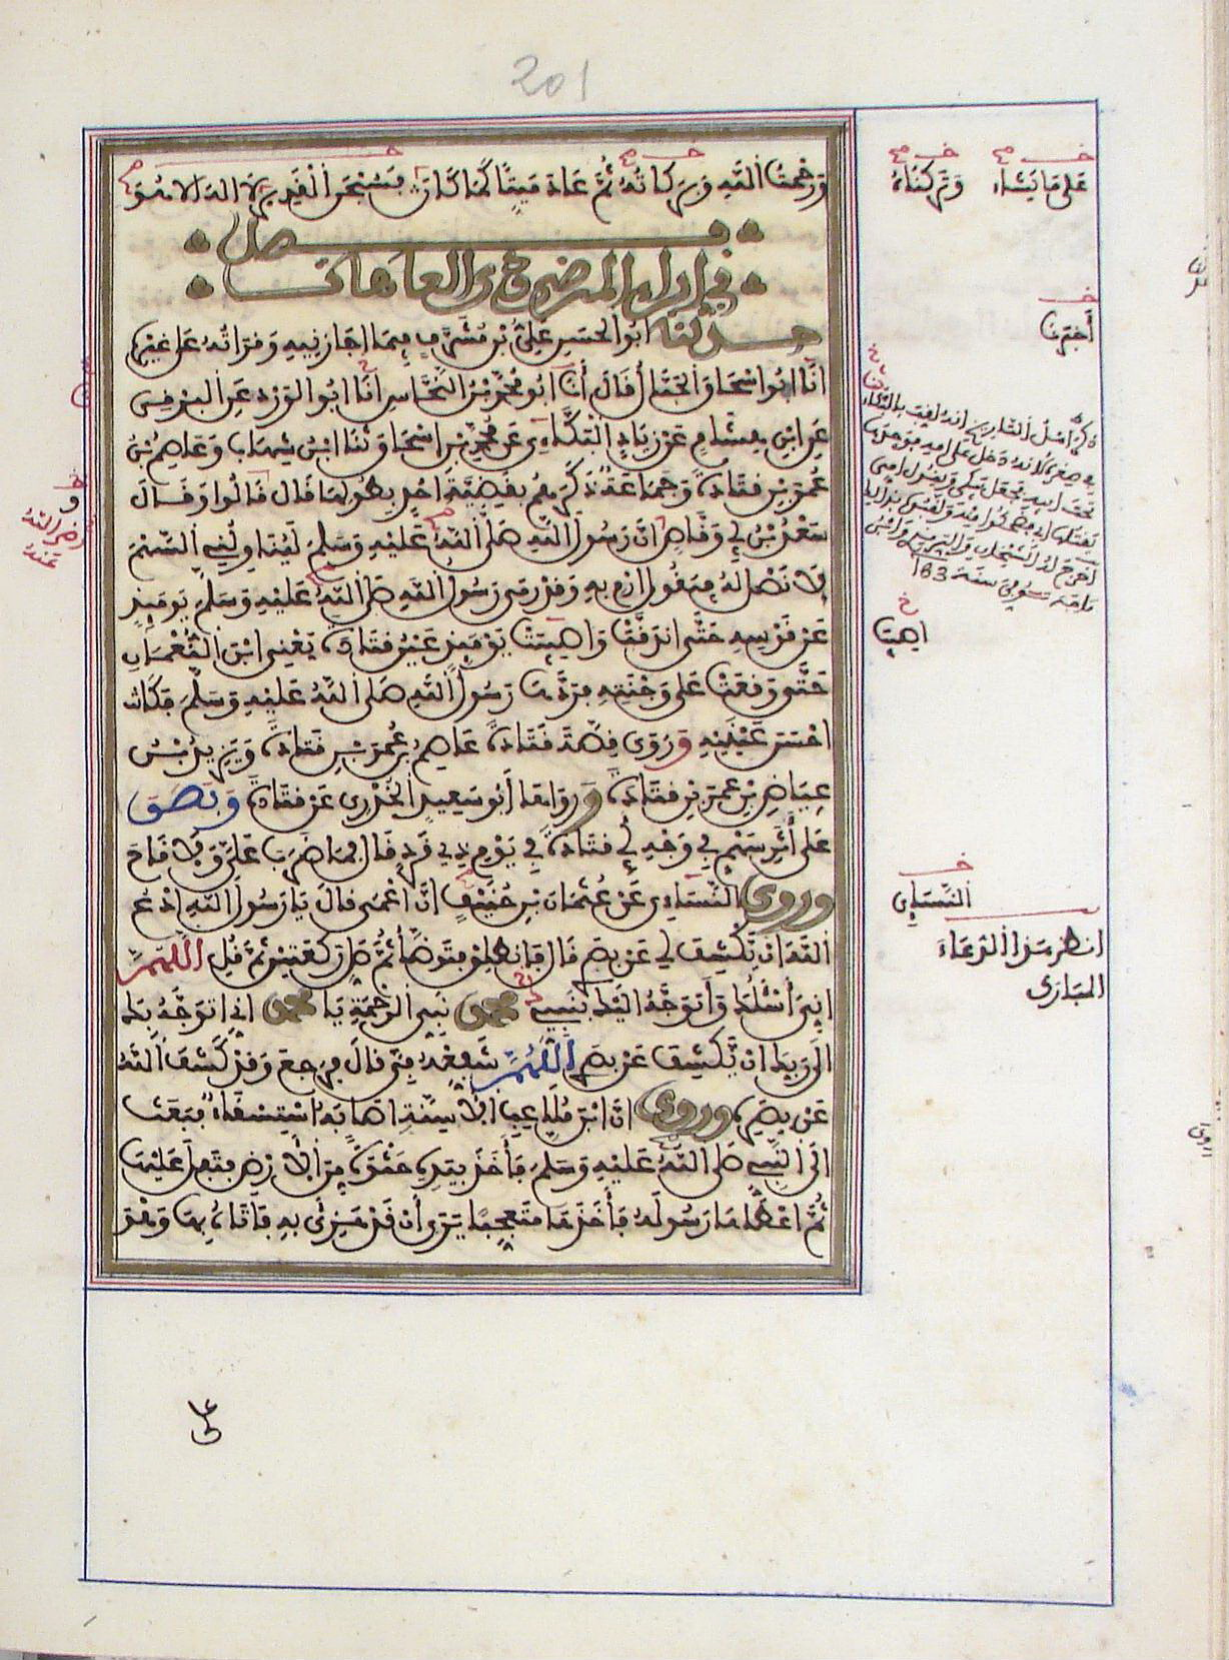 201
ورحمت الله وبركاته ثم عاد ميتا كما كان فسبحن القدير لا اله الا هو
فصل
في ابراء المرضى وذوي العاهات
حدثنا ابو الحسن علي بن مشرف فيما اجازنيه وقراته على غيره
انا ابو اسحاق الحبال قال أنا ابو محمد بن النحاس انا ابو الورد عن البرقي
عن ابن هشام عن زياد البكاءي عن محمد بن اسحاق ثنا ابن شهاب وعاصم بن
عمر بن قتادة وجماعة ذكرهم بقضية احد بطولها قال قالوا وقال
سعد بن ابي وقاص ان رسول الله صلى الله عليه وسلم ليناولني السهم
لا نصل له فيقول ارم به وقد رمى رسول الله صلى الله عليه وسلم يومئذ
عن قوسه حتى اندقت واصيبت يومئذ عين قتادة يعني ابن النعمان
حتى وقعت على وجنته فردها رسول الله صلى الله عليه وسلم فكانت
احسن عينيه وروى قصة قتادة عاصم بن عمر بن قتادة ويزيد بن
عياض بن عمر بن قتادة ورواها أبو سعيد الخدري عن قتادة وبصق
على أثر سهم في وجه أبي قتادة في يوم ذي قرد قال فما ضرب علي ولا قاح
وروى النساءي عن عثمان بن حنيف ان اعمى قال يا رسول الله ادع
الله ان يكشف لي عن بصري قال فانطلق فتوضأ ثم صل ركعتين ثم قل اللهم
اني أسئلك وأتوجه اليك بنبيي محمد نبي الرحمة يا محمد اني اتوجه بك
الى ربك ان يكشف عن بصري اللهم شفعه في قال فرجع وقد كشف الله
عن بصره وروى ان ابن ملاعب الأسنة اصابه استسقاء فبعث
الى النبي صلى الله عليه وسلم فأخذ بيده حثوة من الأرض فتفل عليها
ثم اعطاها رسوله فأخذها متعجبا يرى أن قد هزئ به فاتاه بها وهو
على ما يشاء وتركناه
أخبرنا
اصيبت
النساءي
انظر هذا الدعاء
المبارك
و
رضي الله
عنه
على